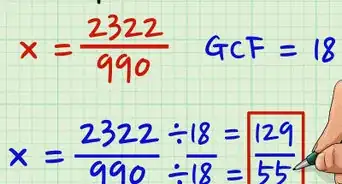 x = 2322/990 GCF = 18
x = 2322/990 ÷18/÷18 = 129/55